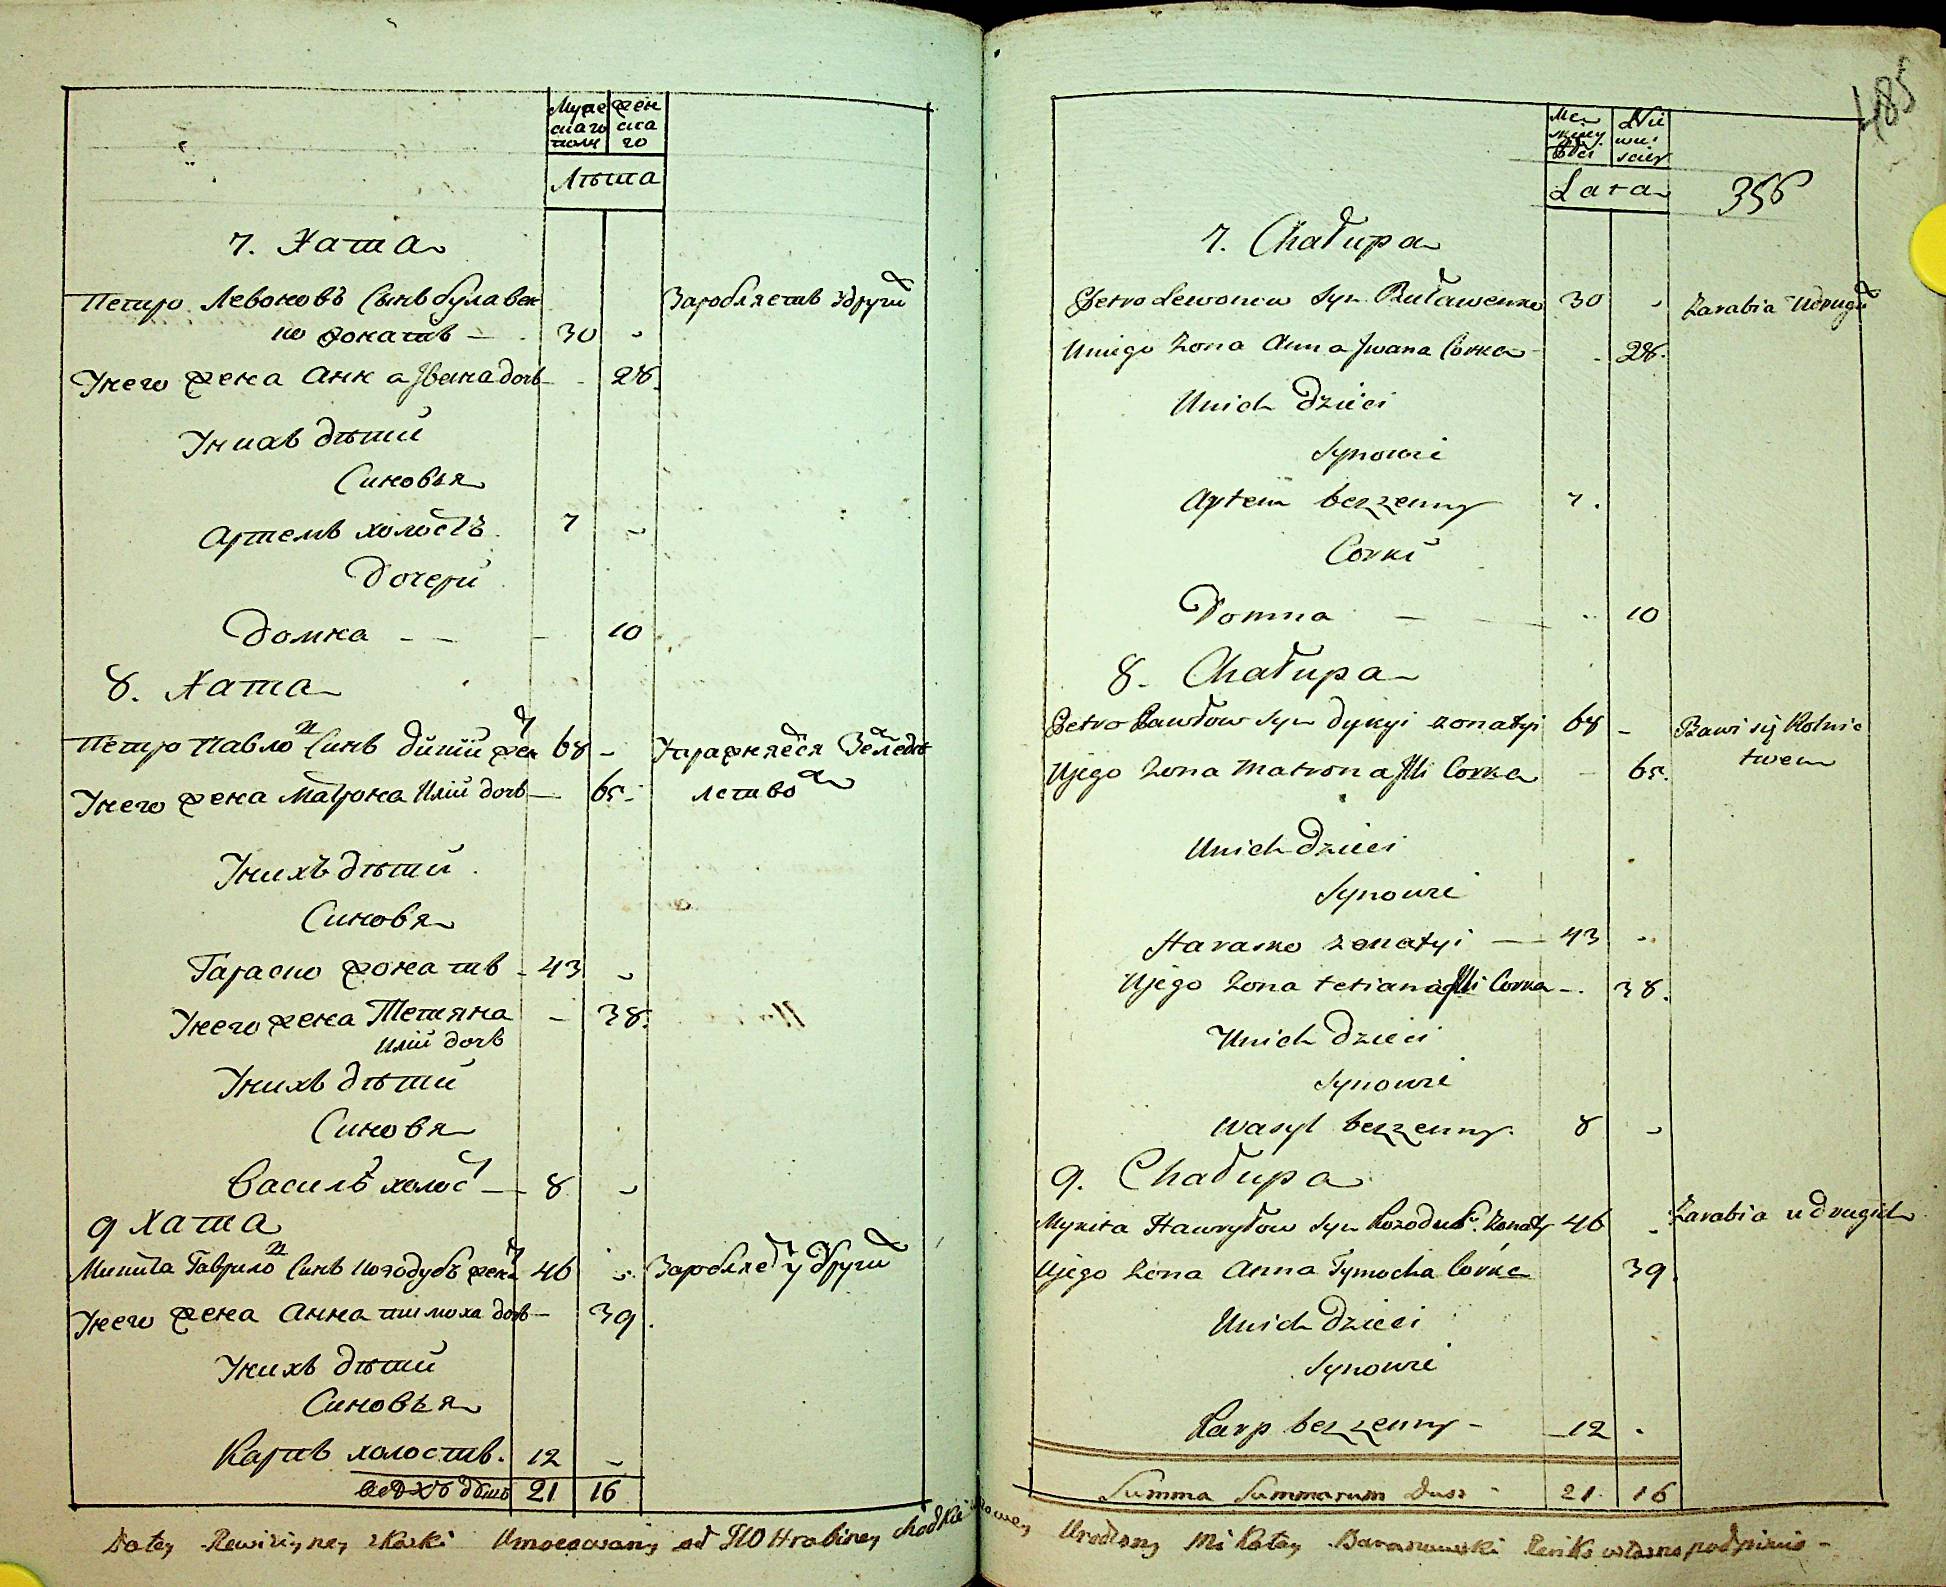 Муже
скаго
полу
жен
ска
го
Лѣта
7. Хата
Петро Левоновъ Сынъ булавен
ко жонатъ — 30 -
Унего жена Анна Јвана дочь - 28.
Унихъ дѣтй
Синовья
Артемъ холостъ 7 -
Дочерй
Домна - - - 10
8. Хата
Петро Павлов Синъ дикй жен 68 -
Унего жена Матрона Илій дочь — 65.
Унихъ дѣтй
Синовя
Тараско жонатъ - 43 -
Унего жена Тетяна — 38.
Илій дочь
Унихъ дѣтй
Синовя
Василь холост — 8 -
9 Хата
Микита Гаврилов Синъ Козодубъ жена 46 -
Унего жена Анна тимоха дочь — 39.
Унихъ дѣтй
Синовья
Карпъ холостъ. 12 -
всѣхъ дѣшъ 21 16
Заробляетъ здруги
лство
Заробляет у други
485
Lata
356
7. Chałupa
Petro Lewonow Syn Buławenko 30 - Zarabia udrugi
Uniego Zona Anna Jwana Corka - 28.
Unich dzieci
Synowie
Artem bezzenny 7.
Corki
Domna — 10
8. Chałupa
Petro Pawłow Syn dykyi zonatyi 68 - Bawi się Rolnic
twem
Ujego Zona Matrona Jlli Corka — 65.
Unich dzieci
Synowie
Harasko zonatyi — 43 -
Ujego Zona tetiana Jlli Corka —. 38.
Unich dzieci
Synowie
wasyl bezzenny. 8 -
9. Chałupa
Mykita Hawryłow Syn Kozodub. Zonaty 46 - Zarabia udrugich
Ujego Zona Anna Tymocha Corka 39.
Unich dzieci
Synowie
Karp bezzenny - 12 -
Summa Summarum Dusz - 21. 16
Do tey Rewizyiney skaski Umocowany od JW Hrabiney Chodkiewiczowey Urodzony Mikołay Baranowski Ręiką własną podpisuie -